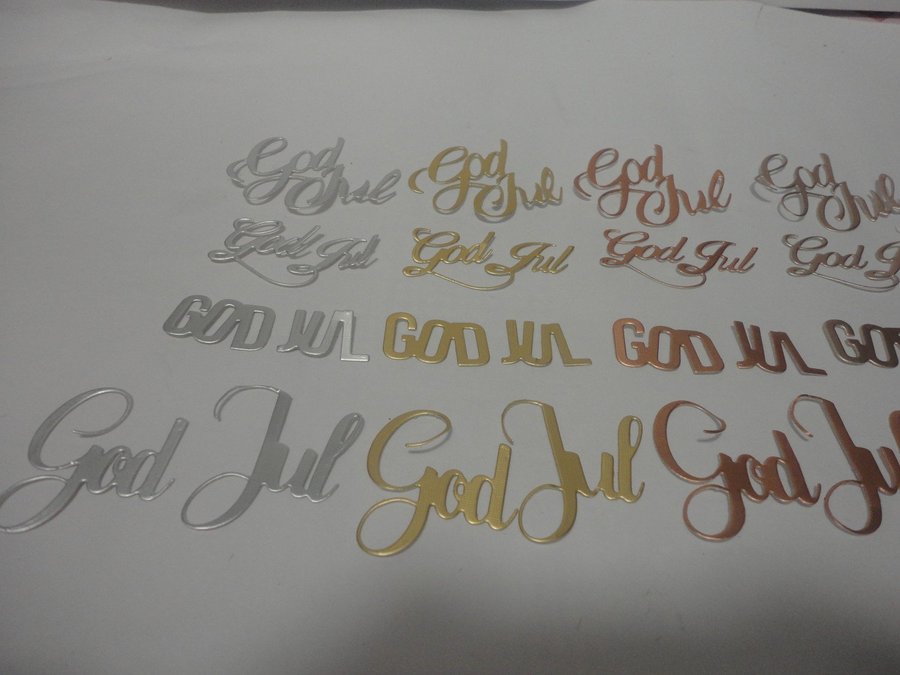 God Jul God Jul God Jul God Jul
God Jul God Jul God Jul God J
GOD JUL GOD JUL GOD JUL GO
God Jul God Jul God Ju